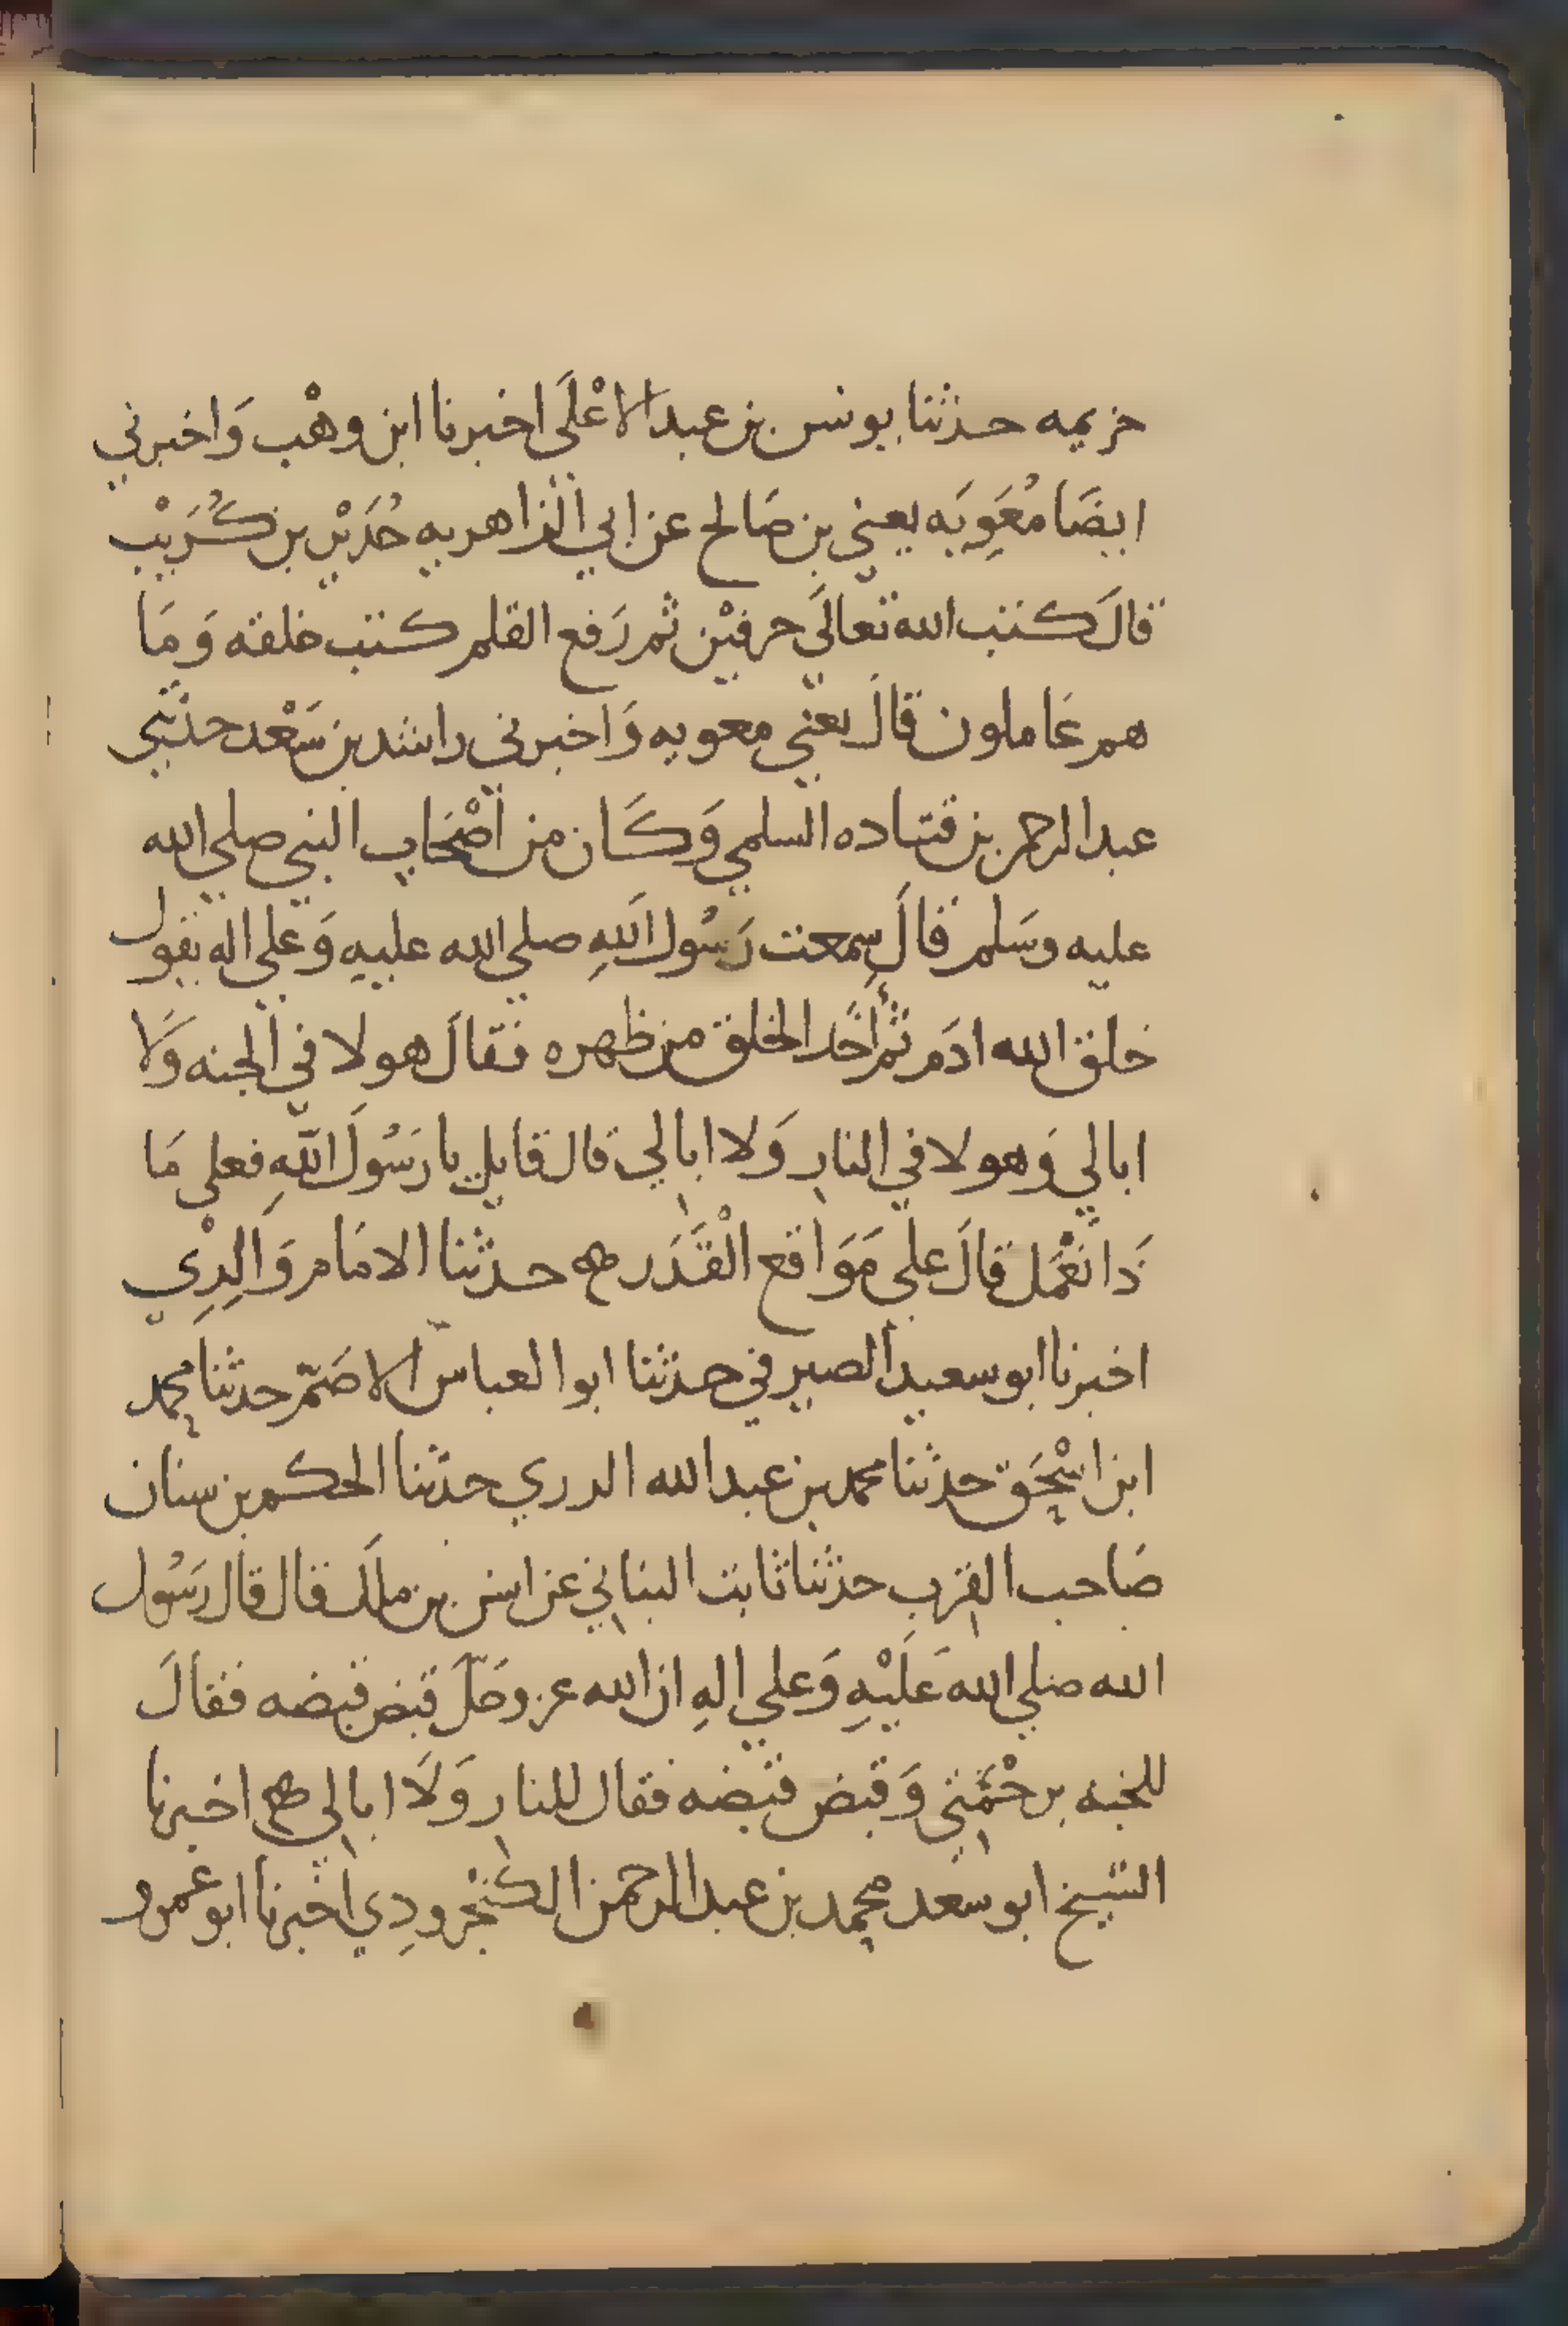 خزيمه حدثنا يونس بن عبد الاعْلَى اخبرنا ابن وهْب وَاخبرني
ايضَا مُعَوِيَه يعني بن صَالح عن ابي الزاهريه حُدَيْر بن كُرَيْب
قالَ كتب الله تعالَي حرفيْن ثم رَفع القلم كتب خلقه وَمَا
هم عَاملون قالَ يعني معويه وَاخبرني راشد بن سَعْد حدثني
عبد الرحمن بن قتاده السلمي وَكَان من اصْحَاب النبي صلي الله
عليه وسَلم قالَ سِمعت رَسُول اللهِ صلي الله عليهِ وَعلي اله يقول
خلق الله ادَم ثم اخَد الخلق من ظهره فقالَ هولا في الجنه وَلَا
ابالي وَهولا في النار وَلا ابالي قال قايل يا رَسُولَ اللهِ فعلي مَا
ذَا نَعْمَل قالَ علي مَوَاقع الْقَدَر ه حدثنا الامَام وَالِدِي
اخبرنا ابو سعيد الصيرفي حدثنا ابو العباس الاصَمّ حدثنا محمد
ابن اسْحَق حدثنا محمد بن عبد الله الدري حدثنا الحكم بن سنان
صَاحب القرب حدثنا ثابت البناني عن انس بن ملك قال قال رَسُول
الله صلي الله عَلَيْهِ وَعلي الهِ ان الله عز وجَلّ قبض قبضه فقالَ
للجنه برحْمَتي وَقبض قبضه فقال للنار وَلَا ابالي ه اخبرنا
الشيخ ابو سَعد محمد بن عبد الرحمن الكنْجرودِي اخبرنا ابو عمرو